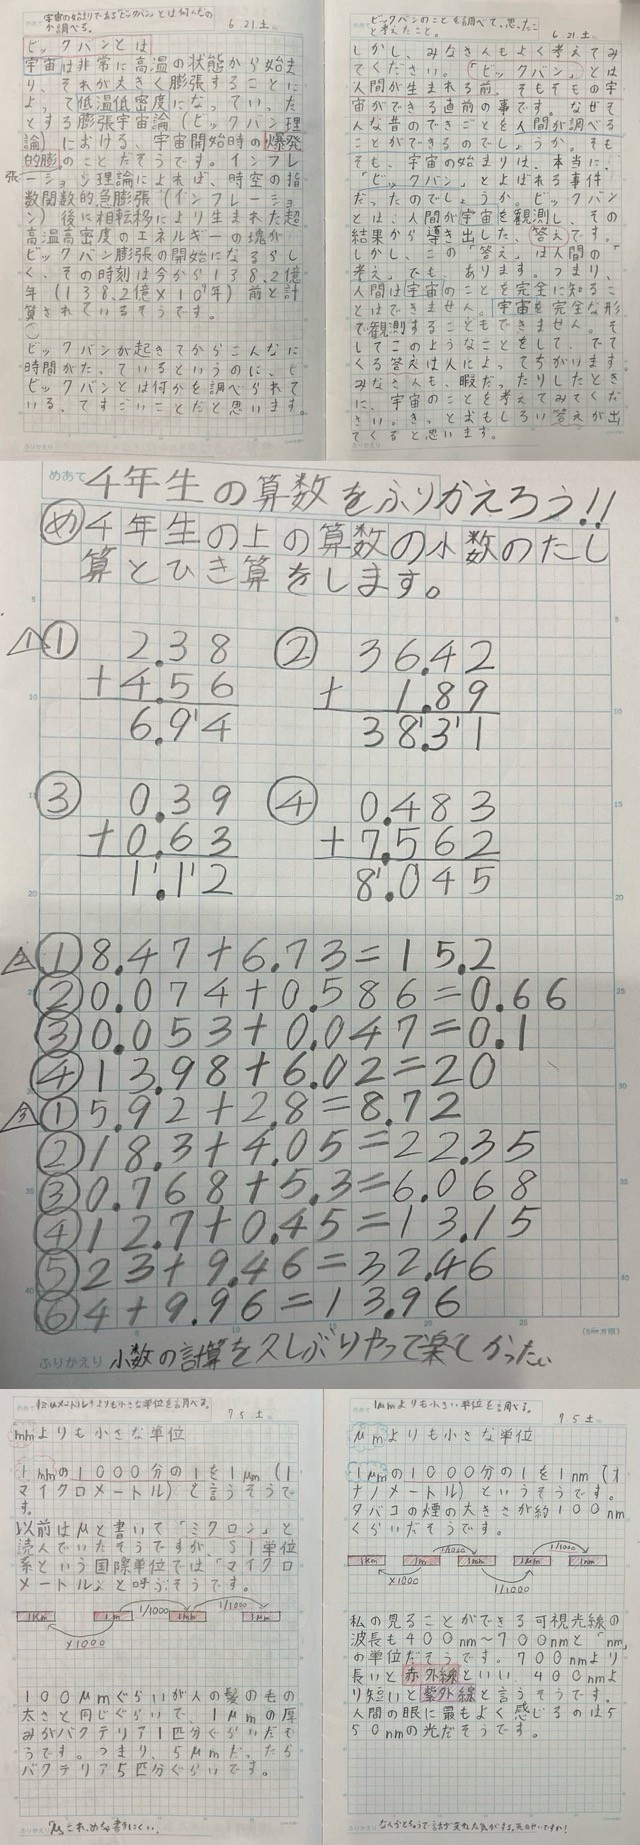 宇宙の始まりであるビックバンとは何なの
か調べる。
6.21土
ビックバンとは
宇宙は非常に高温の状態から始ま
り、それが大きく膨張することに
よって低温低密度になっていった
とする膨張宇宙論(ビックバン理
論)における、宇宙開始時の爆発
的膨
張のことだそうです。インフレ
ーション理論によれば、時空の指
数関数的急膨張(インフレーショ
ン)後に相転移により生まれた超
高温高密度のエネルギーの塊が
ビックバン膨張の開始になるらし
く、その時刻は今から138.2億
年(138.2億×10⁹年)前と計
算されているそうです。
ビックバンが起きてからこんなに
時間がたっているというのに、ビ
ビックバンとは何かを調べられて
いる、てすごいことだと思います。
ビックバンのことを調べて、思ったこ
と考えたこと。
6.21土
しかし、みなさんもよく考えてみ
てください。「ビックバン」とは
人間が生まれる前、そもそもの宇
宙ができる直前の事です。なぜそ
んな昔のできごとを人間が調べる
ことができるのでしょうか。そも
そも、宇宙の始まりは、本当に、
「ビックバン」とよばれる事件
だったのでしょうか。ビックバン
とは、人間が宇宙を観測し、その
結果から導き出した、答えです。
しかし、この「答え」は人間の「
考え」でも、あります。つまり、
人間は宇宙のことを完全に知るこ
とはできません。宇宙を完全な形
で観測することもできません。そ
してこのようなことをして、でて
くる答えは人によってちがいます。
みなさんも、暇だったりしたとき
に、宇宙のことを考えてみてくだ
さい。きっとおもしろい答えが出
てくると思います。
めあて 4年生の算数をふりかえろう!!
め 4年生の上の算数の小数のたし
算とひき算をします。
△1 ① 2.38
+4.56
6.94
② 36.42
+ 1.89
38.31
③ 0.39
+0.63
1.12
④ 0.483
+7.562
8.045
△2 ① 8.47+6.73=15.2
② 0.074+0.586=0.66
③ 0.053+0.047=0.1
④ 13.98+6.02=20
△3 ① 5.92+2.8=8.72
② 18.3+4.05=22.35
③ 0.768+5.3=6.068
④ 12.7+0.45=13.15
⑤ 23+9.46=32.46
⑥ 4+9.96=13.96
(5mm方眼)
ふりかえり 小数の計算を久しぶりやって楽しかった。
よりも小さな単位を調べる。
7.5 土
mmよりも小さな単位
1mmの1000分の1を1μm(1
マイクロメートル)と言うそうで
す。
以前はμと書いて「ミクロン」と
読んでいたそうですが、SI単位
系という国際単位では「マイクロ
メートル」と呼ぶそうです。
1Km 1m 1mm 1μm
1/1000 1/1000
×1000
100μmぐらいが人の髪のもの
太さと同じぐらいで、1μmの厚
みがバクテリア1匹分ぐらいだそ
うです。つまり、5μmだったら
バクテリア5匹分ぐらいです。
μ これ、めっちゃ書きにくい。
1μmよりも小さい単位を調べる。
7.5 土
μmよりも小さな単位
1μmの1000分の1を1nm(1
ナノメートル)というそうです。
タバコの煙の大きさが約100nm
くらいだそうです。
1Km 1m 1mm 1μm 1nm
1/1000 1/1000
×1000 1/1000
私の見ることができる可視光線の
波長も400nm~700nmと「nm」
の単位だそうです。700nmより
長いと赤外線といい、400nmよ
り短いと紫外線と言うそうです。
人間の眼に最もよく感じるのは5
50nmの光だそうです。
ふりかえり